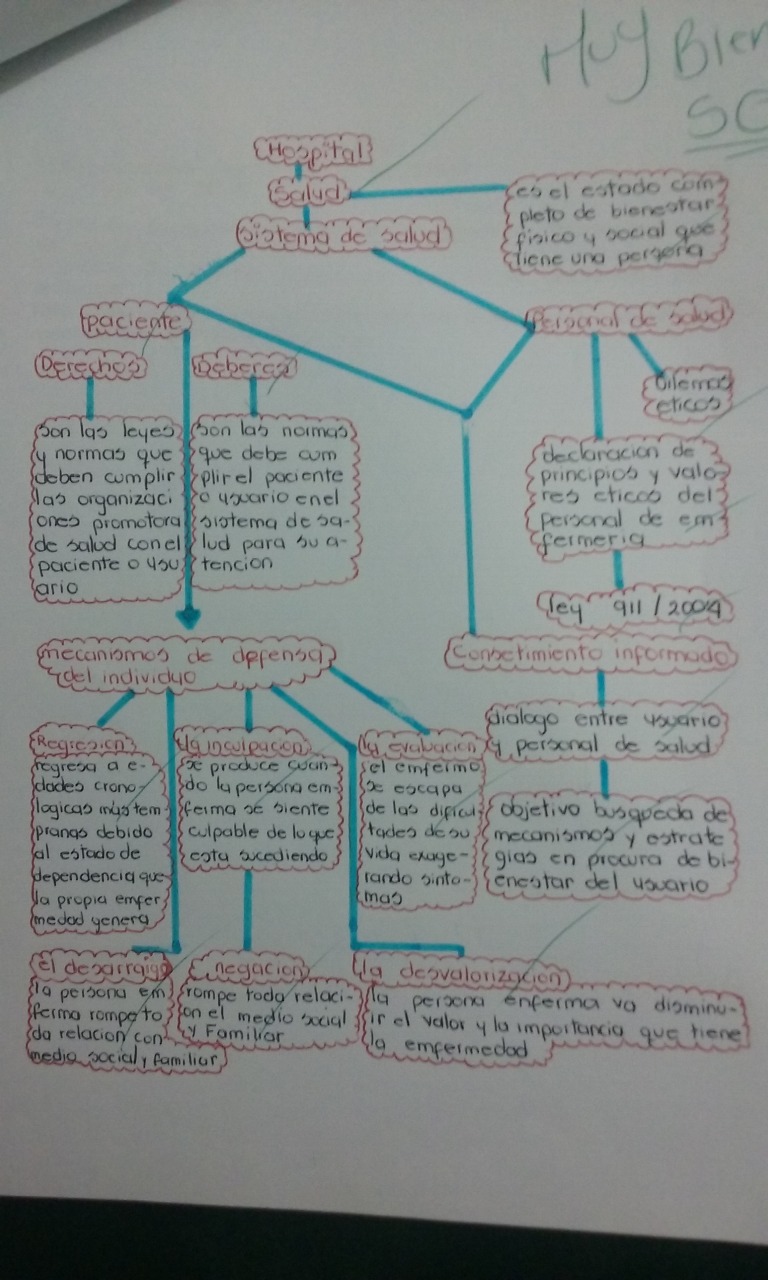 Muy Bien
Hospital
Salud
es el estado com
pleto de bienestar
fisico y social que
tiene una persona
Sistema de salud
paciente
Personal de salud
Derechos
Deberes
Dilemas
eticos
son las leyes
y normas que
deben cumplir
las organizaci
ones promotora
de salud con el
paciente o usu
ario
son las normas
que debe cum
plir el paciente
o usuario en el
sistema de sa-
lud para su a-
tencion
declaracion de
principios y valo-
res eticos del
personal de em
fermeria
ley 911/2004
mecanismos de defensa
del individuo
Consetimiento informado
dialogo entre usuario
y personal de salud
objetivo busqueda de
mecanismos y estrate
gias en procura de bi-
enestar del usuario
Regresion
regresa a e-
dades crono-
logicas mas tem
pranas debido
al estado de
dependencia que
la propia enfer
medad genera
la inculpacion
se produce cuan
do la persona em-
ferma se siente
culpable de lo que
esta sucediendo
la evaluacion
el emfermo
se escapa
de las dificul
tades de su
vida exage-
rando sinto-
mas
el desarraigo
la persona em
ferma rompe to
da relacion con
medio social y familiar
negacion
rompe toda relaci-
on el medio social
y Familiar
la desvalorizacion
la persona enferma va disminu-
ir el valor y la importancia que tiene
la emfermedad